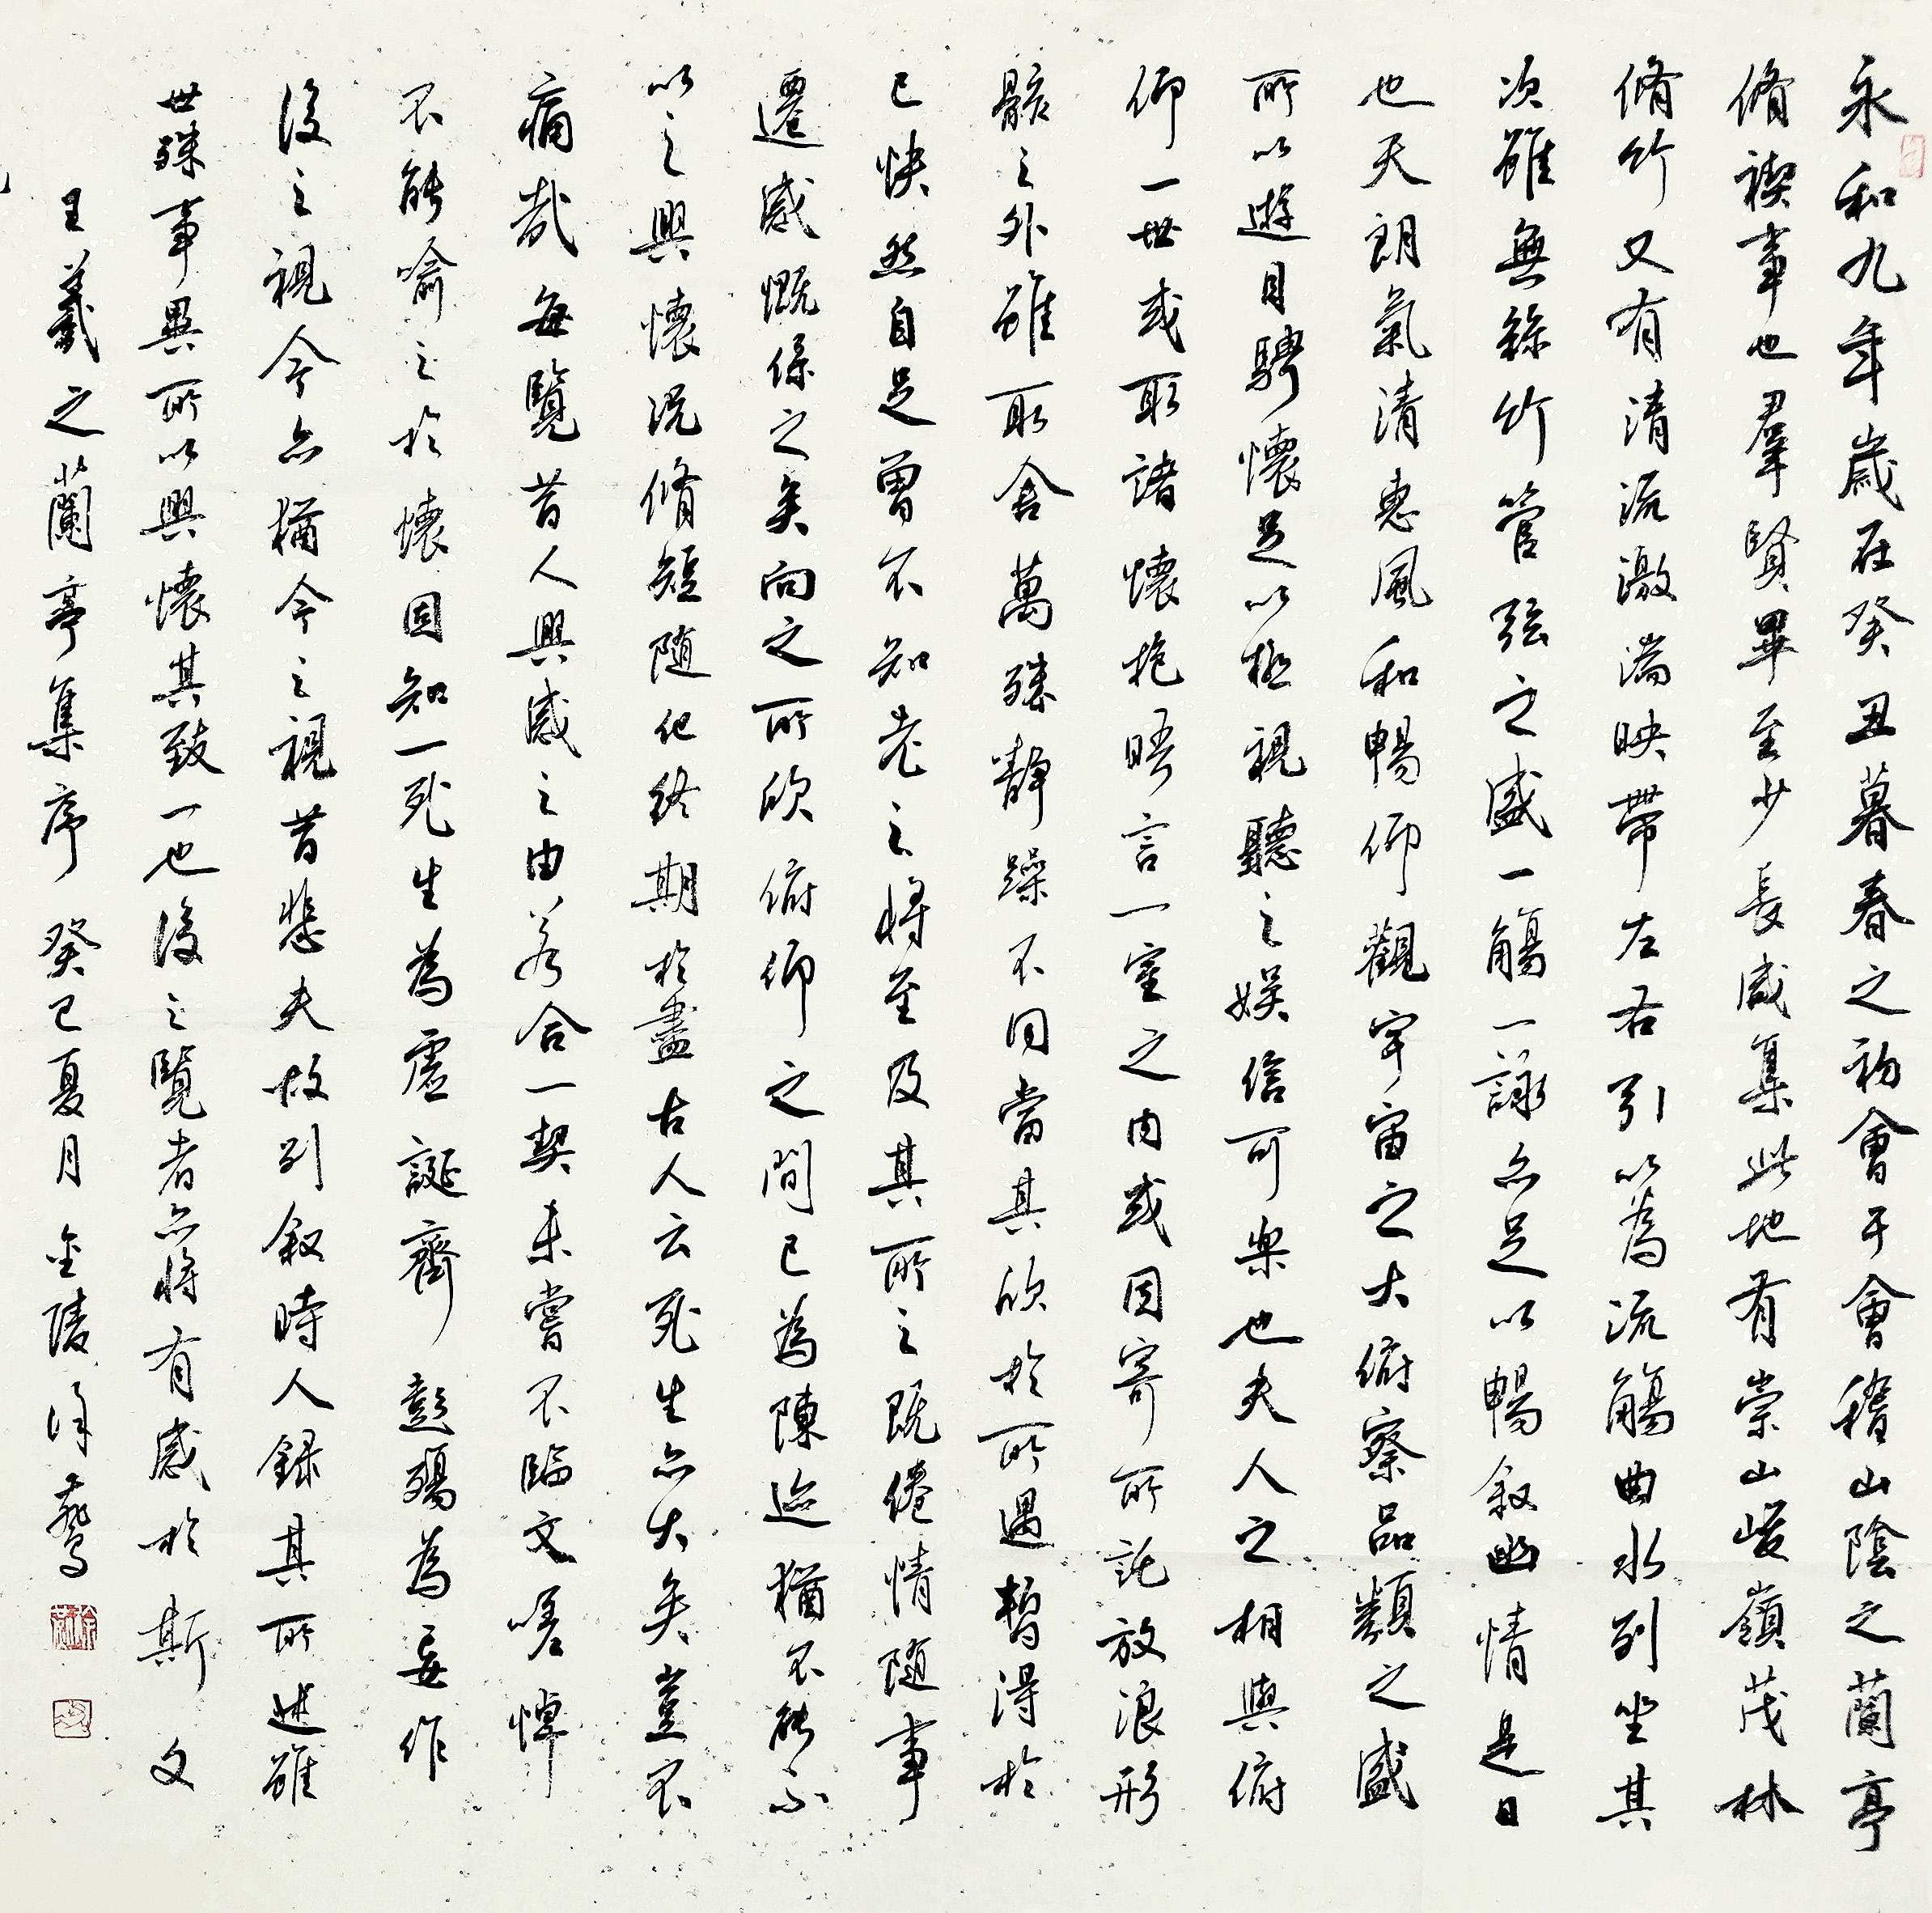 永和九年歲在癸丑暮春之初會于會稽山陰之蘭亭
脩禊事也羣賢畢至少長咸集此地有崇山峻嶺茂林
脩竹又有清流激湍映帶左右引以為流觴曲水列坐其
次雖無絲竹管弦之盛一觴一詠亦足以暢敘幽情是日
也天朗氣清惠風和暢仰觀宇宙之大俯察品類之盛
所以遊目騁懷足以極視聽之娛信可樂也夫人之相與俯
仰一世或取諸懷抱晤言一室之內或因寄所託放浪形
骸之外雖取舍萬殊靜躁不同當其欣於所遇暫得於
己快然自足曾不知老之將至及其所之既倦情隨事
遷感慨係之矣向之所欣俯仰之間已為陳迹猶不能不
以之興懷況脩短隨化終期於盡古人云死生亦大矣豈不
痛哉每覽昔人興感之由若合一契未嘗不臨文嗟悼
不能喻之於懷固知一死生為虛誕齊彭殤為妄作
後之視今亦猶今之視昔悲夫故列敘時人錄其所述雖
世殊事異所以興懷其致一也後之覽者亦將有感於斯文
王羲之蘭亭集序 癸巳夏月金陵